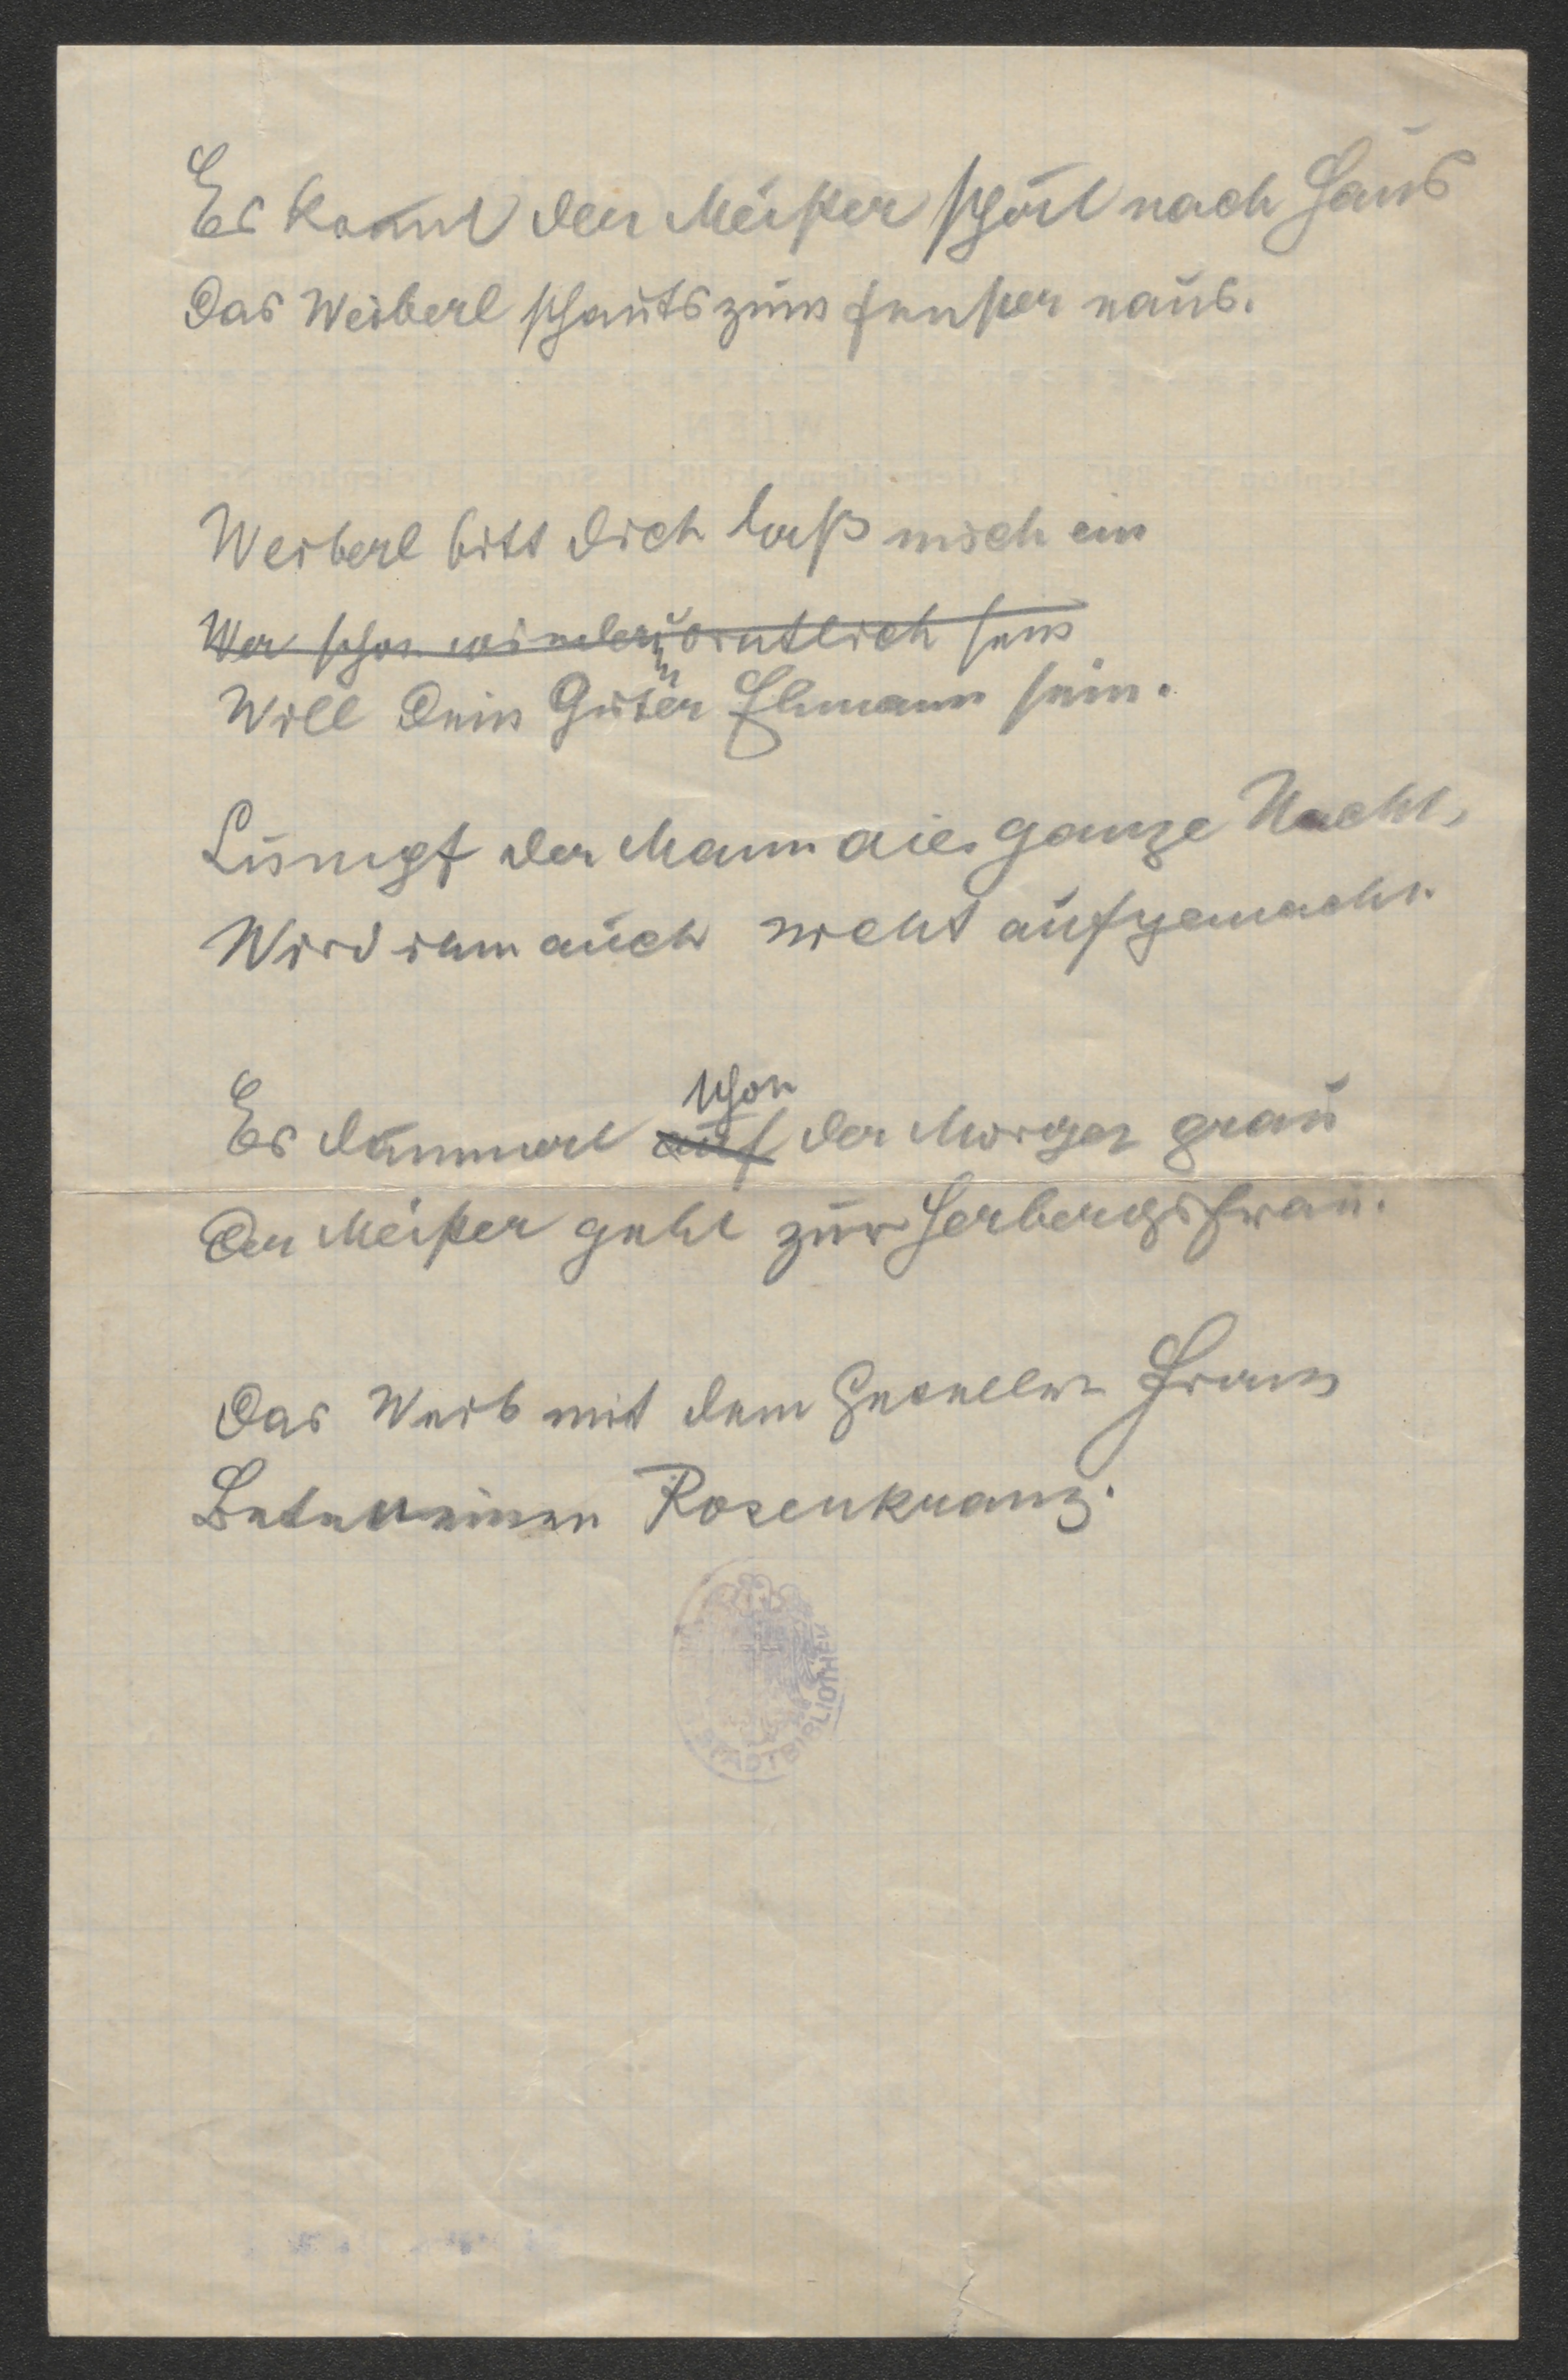 Es kommt der Meister spät nach Haus
Das Weiberl schauts zum Fenster naus.
WIEN
Weiberl bitt dich laß mich ein
Wer schon wieder orntlich sein
Will Dein Guter Ehmann sein.
Lumpt der Mann die ganze Nacht,
Wird ihm auch nicht aufgemacht.
schon
Es dämmert auf der Morgen grau
Der Meister geht zur Herbergsfrau.
Das Weib mit dem Gesellen Franz
Beten einen Rosenkranz.
STADTBIBLIOTHEK